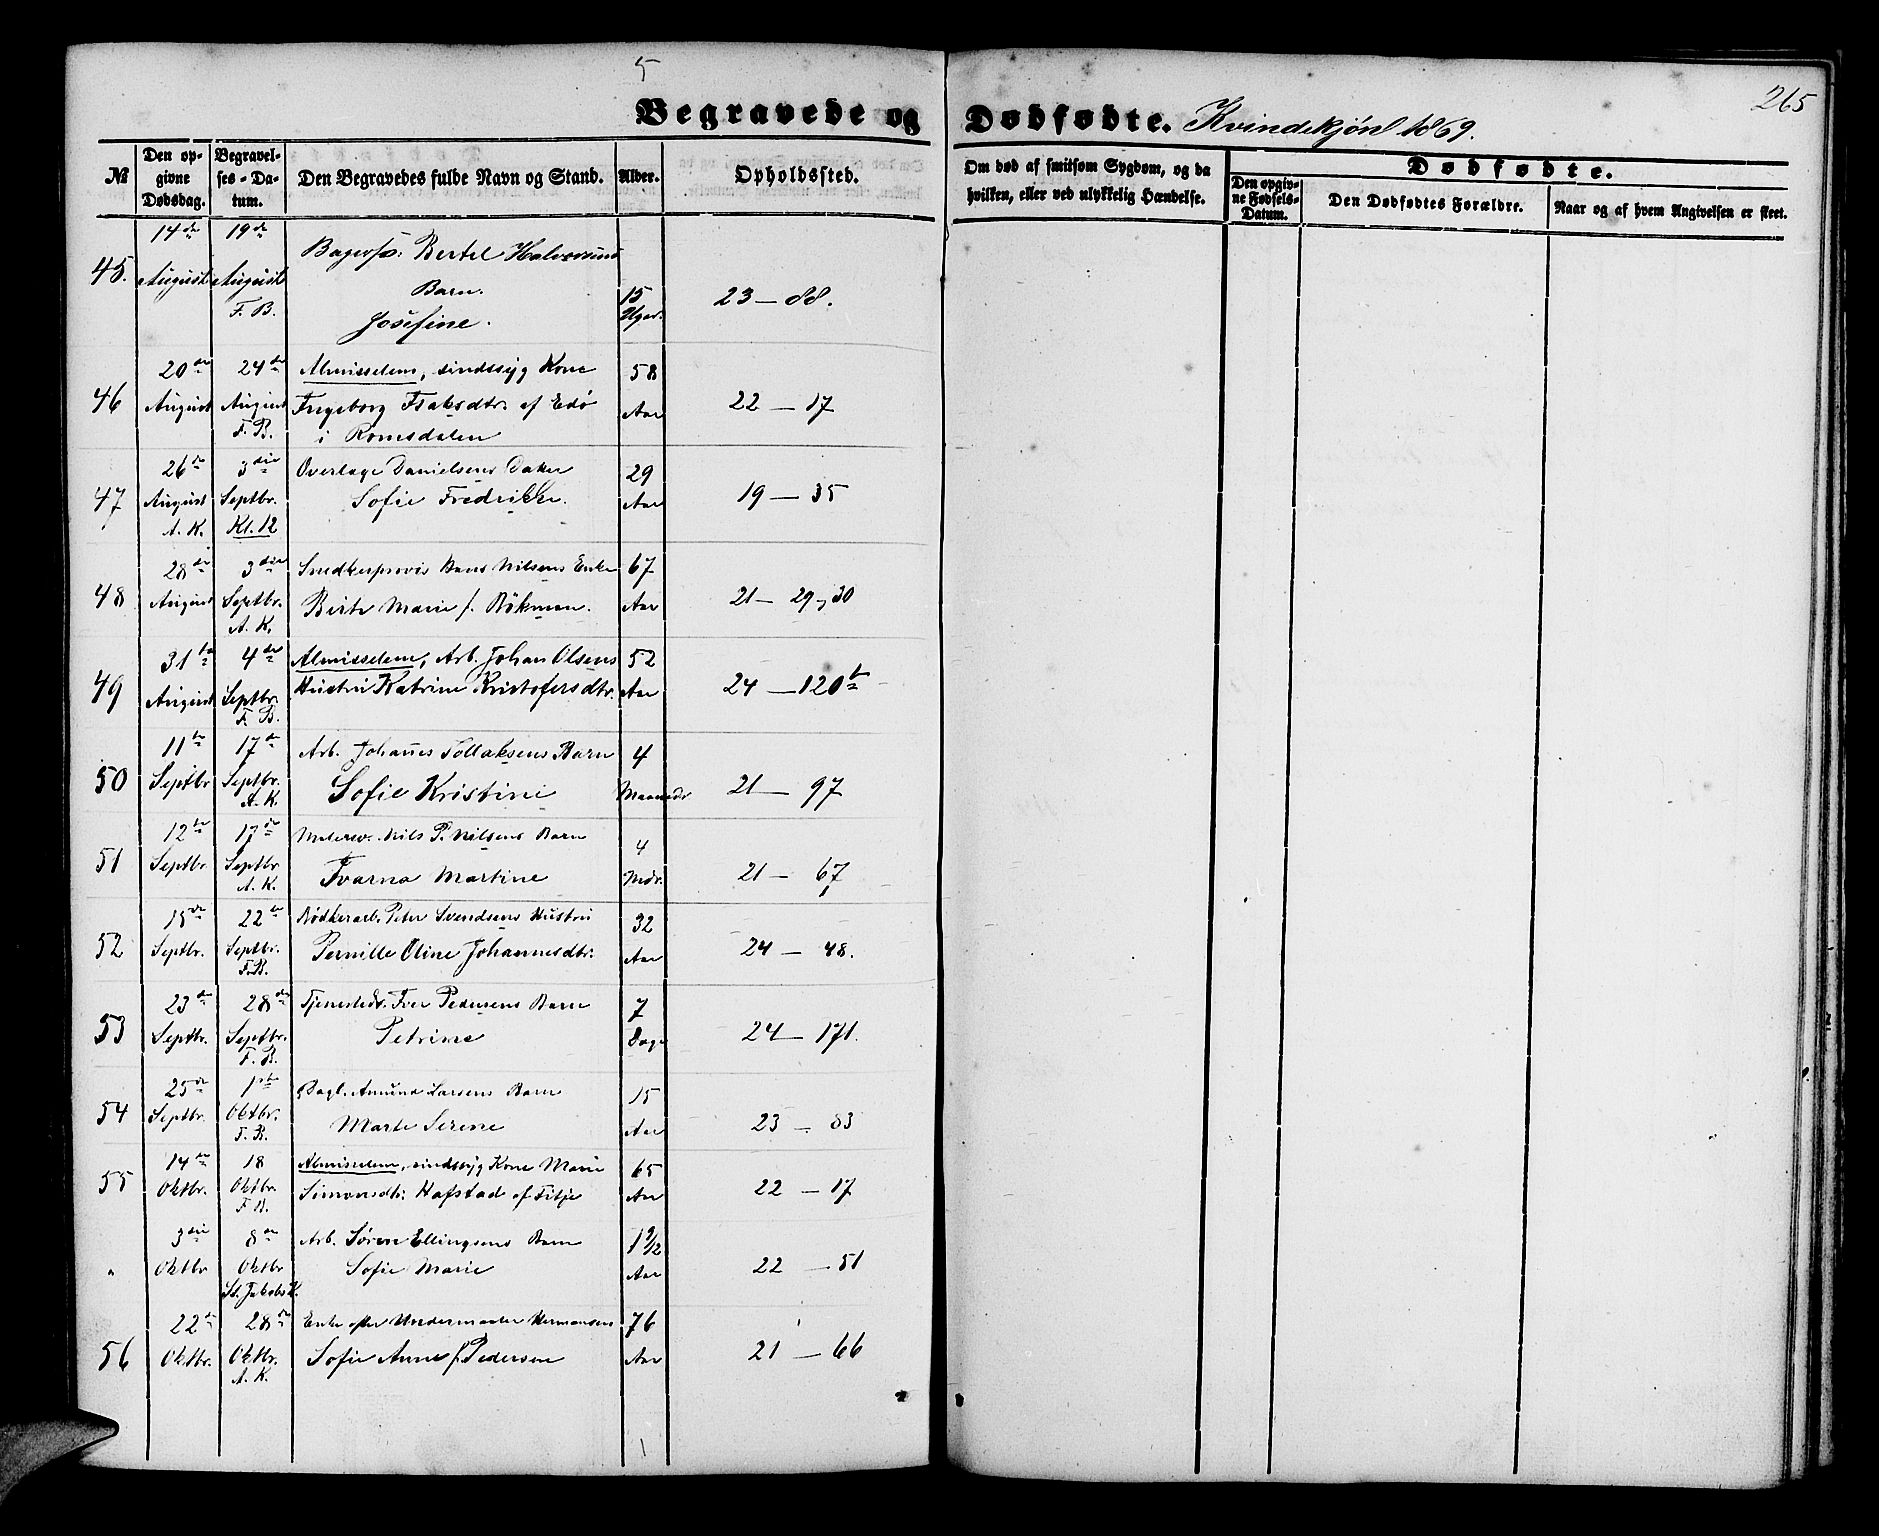 5
265
Begravede og Dødfødte. Kvindekjøn 1869.
№ Den opgivne Dødsdag. Begravelses-Datum. Den Begravedes fulde Navn og Stand. Alder. Opholdssted.
Om død af smitsom Sygdom, og da hvilken, eller ved ulykkelig Hændelse.
Dødfødte.
Den opgivne Fødsels-Datum. Den Dødfødtes Forældre. Naar og af hvem Angivelsen er skeet.
14de 19de
45. August August Bertel Halvorsens
F. B. Barn. 15 23 — 88.
Josefine. Uger.
20de 24de Almisselem, sindssyg Kone 58
46 August August Ingeborg Isaksdtr. af Edö Aar 22 — 17
F. B. i Romsdalen
26de 3die Overlæge Danielsens Datter 29
47 August Septbr. Sofie Fredrikke. Aar 19 — 35
A. K. Kl. 12
28de 3die Snedkersvens Hans Nilsens Enke 67
48 August Septbr. Birte Marie f. Bökman. Aar 21 — 29, 30
A. K.
31te 4de Almisselem, Arb. Johan Olsens 52
49 August Septbr. Hustru Katrine Kristofersdtr. Aar 24 — 120b
F. B.
11te 17de Arb. Johañes Tollaksens Barn 4
50 Septbr Septbr. Sofie Kristine Maaneder 21 — 97
A. K.
12te 17de Malersv. Nils P. Nilsens Barn 4
51 Septbr Septbr Ivarna Martine Mdr. 21 — 67
A. K.
15de 22de Bödkerarb. Peter Svendsens Hustru 32
52 Septbr. Septbr. Pernille Oline Johannesdtr. Aar 24 — 48.
F. B.
23de 28de Tjenestedr. Iver Pedersens Barn 7
53 Septbr. Septbr. Petrine Dage 24 — 171.
F. B.
25de 1ste Dagl. Amund Larsens Barn 15
54 Septbr. Oktbr. Marte Serine Aar 23 — 83
F. B.
14de 18 Almisselem, sindssyg Kone Marie 65
55 Oktbr. Oktbr. Simonsdtr. Hafstad af Fitje Aar 22 — 17
F. B.
3die 8de Arb. Sören Ellingsens Barn 1 9/12
" Oktbr Oktbr Sofie Marie Aar 22 — 51
St. Jakobs K.
22de 28de Enke efter Undermaaler Hermansen 76
56 Oktbr. Oktbr. Sofie Anne f. Pedersen Aar 21 — 66
A. K.